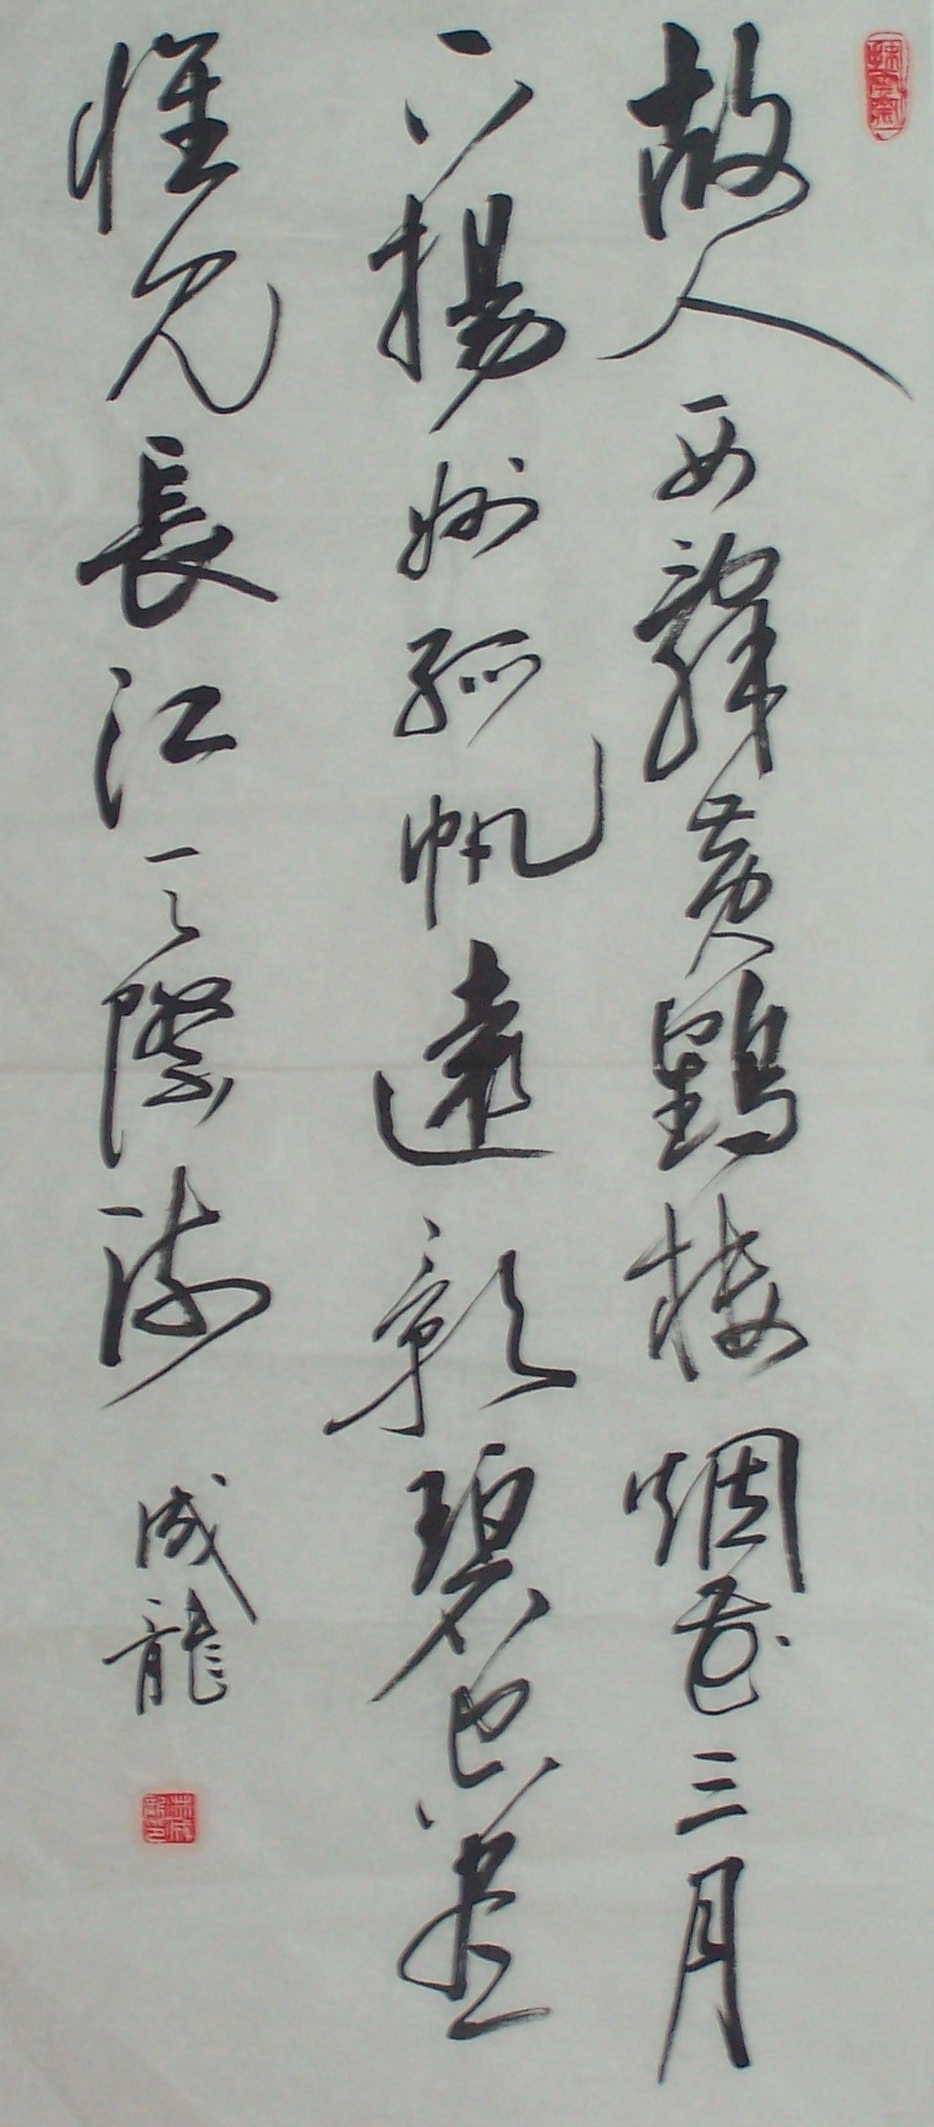 故人西辭黃鶴樓烟花三月
下揚州孤帆遠影碧空盡
惟見長江天際流
成龍